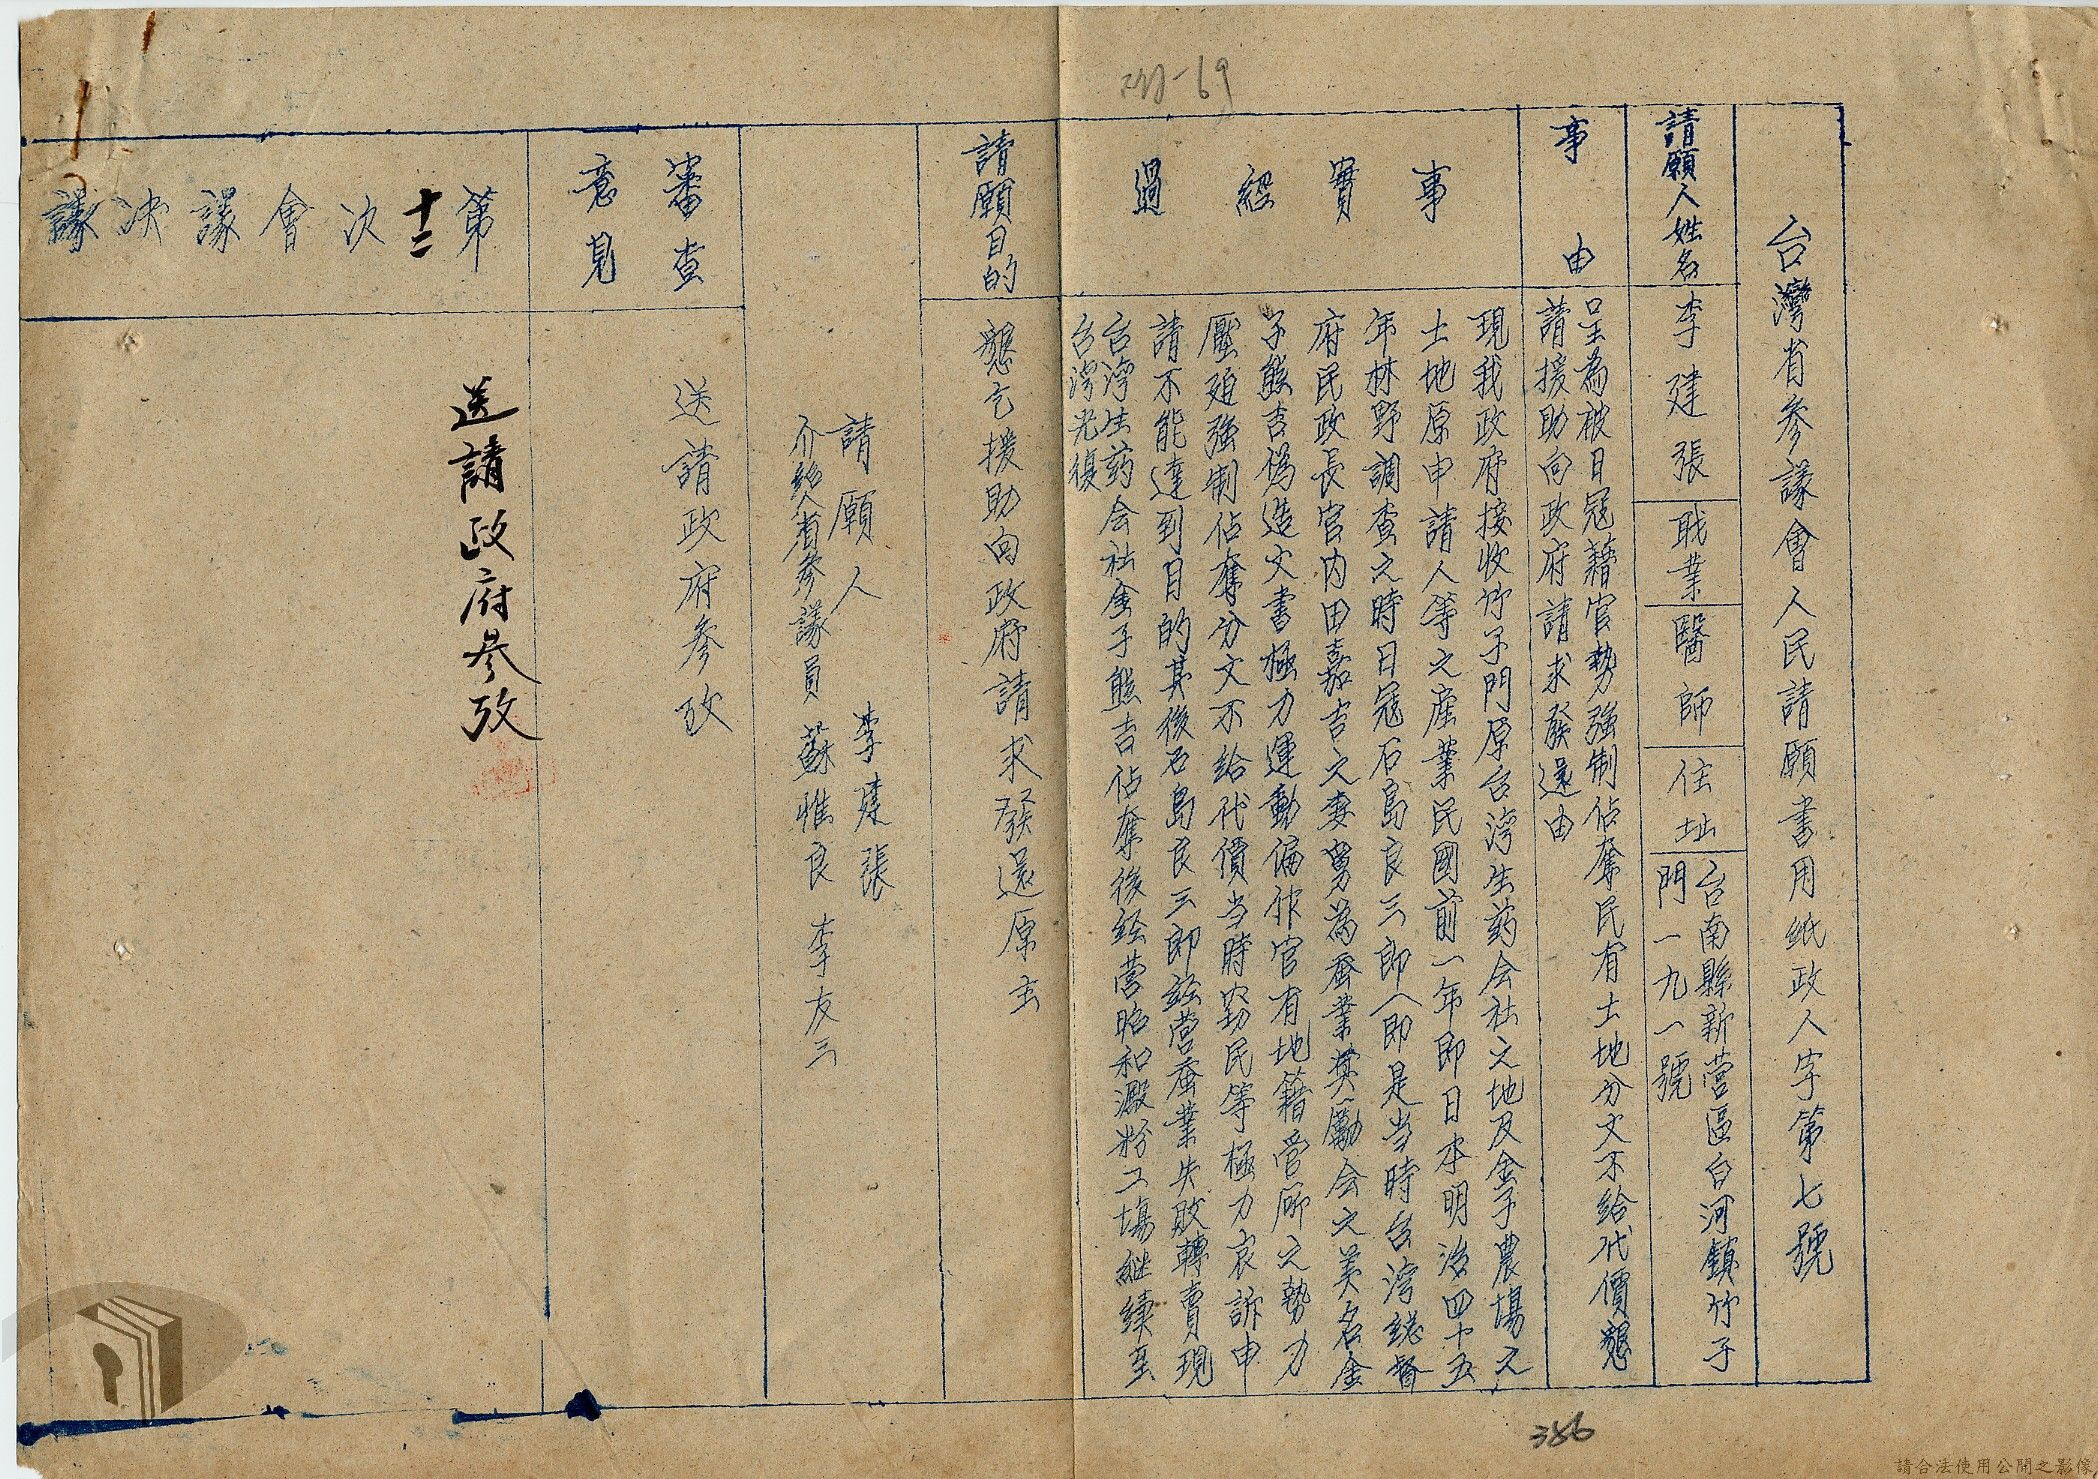 台灣省參議會人民請願書用紙政人字第七號
請願人姓名
李建張
職業
醫師
住址
台南縣新營區白河鎮竹子
門一九一號
事由
呈為被日冦藉官勢強制佔奪民有土地分文不給代價懇
請援助向政府請求發還由
事實經過
現我政府接收竹子門原台湾生葯会社之地及金子農場之
土地原申請人等之產業民國前一年即日本明治四十五
年林野調查之時日冦石島良三郎(即是当時台湾総督
府民政長官内田嘉吉之妻舅為蚕業奨勵会之美名金
子熊吉偽造文書極力運動偏作官有地籍官廳之勢力
壓廹強制佔奪分文不給代價当時窮民等極力哀訴申
請不能達到目的其後石島良三郎経营蚕業失敗轉賣現
台湾生葯会社金子熊吉佔奪後経营昭和澱粉工場継续至
台湾光復
請願目的
懇乞援助向政府請求發還原主
請願人 李建張
介紹人省參議員 蘇惟良 李友三
審查意見
送請政府參攷
第十二次會議決議
送請政府參攷
69
386
請合法使用公開之影像